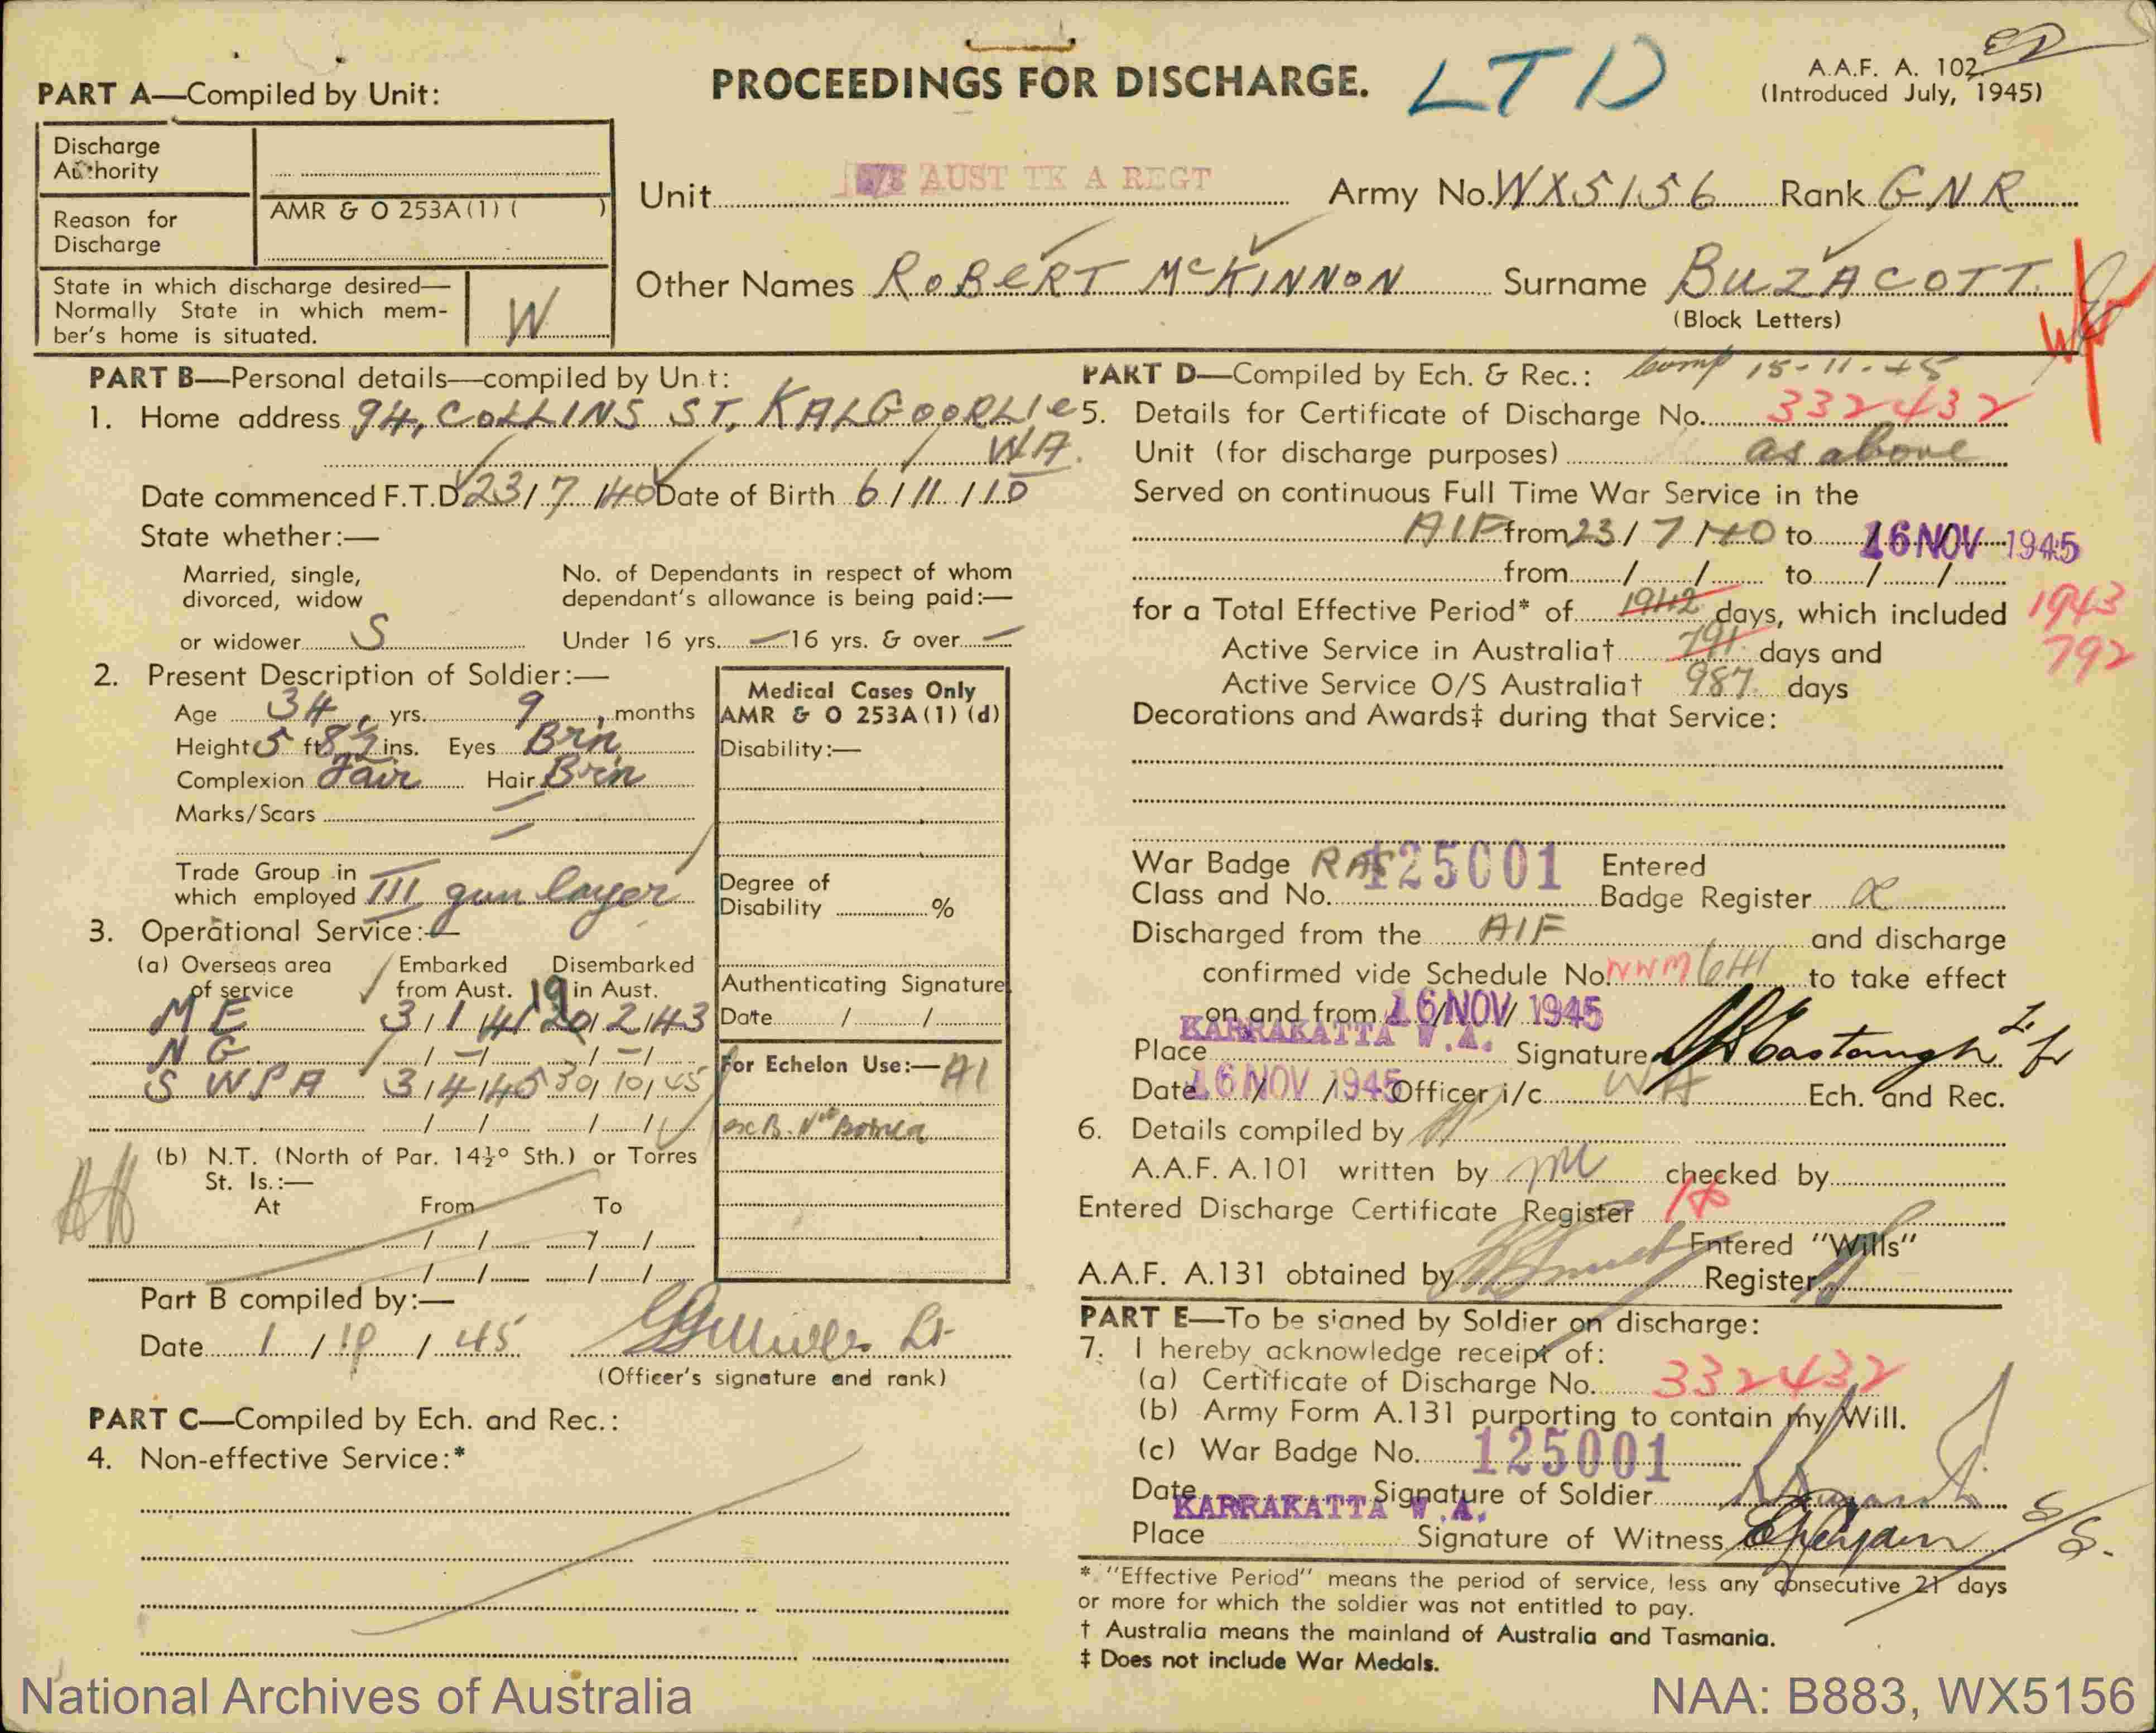 PROCEEDINGS FOR DISCHARGE. LTD
A.A.F. A. 102.
(Introduced July, 1945)
PART A—Compiled by Unit:
Discharge
Authority
Reason for
Discharge
AMR & O 253A(1) ( )
State in which discharge desired—
Normally State in which mem-
ber's home is situated.
W
Unit AUST TK A REGT Army No. WX5156 Rank GNR
Other Names ROBERT McKINNON Surname BUZACOTT.
(Block Letters)
PART B—Personal details—compiled by Unit:
1. Home address 94, COLLINS ST, KALGOORLIE
WA.
Date commenced F.T.D. 23/7/40 Date of Birth 6/11/10
State whether:—
Married, single,
divorced, widow
or widower S
No. of Dependants in respect of whom
dependant's allowance is being paid:—
Under 16 yrs. — 16 yrs. & over —
2. Present Description of Soldier:—
Age 34 yrs. 9, months
Height 5 ft 8½ ins. Eyes Brn
Complexion Fair Hair Brn
Marks/Scars —
Trade Group in
which employed III gun layer
3. Operational Service:—
(a) Overseas area
of service
Embarked
from Aust.
Disembarked
in Aust.
M E 3/1/41 19 20/2/43
N G /–/ /–/
S W P A 3/4/45 30/10/45
(b) N.T. (North of Par. 14½° Sth.) or Torres
St. Is.:—
At From To
Part B compiled by:—
Date 1/10/45 Lt
(Officer's signature and rank)
Medical Cases Only
AMR & O 253A(1) (d)
Disability:—
Degree of
Disability %
Authenticating Signature
Date / /
For Echelon Use:— A1
PART C—Compiled by Ech. and Rec.:
4. Non-effective Service:*
PART D—Compiled by Ech. & Rec.: 15-11-45
5. Details for Certificate of Discharge No. 332432
Unit (for discharge purposes) as above
Served on continuous Full Time War Service in the
AIF from 23/7/40 to 16 NOV 1945
from / / to / /
for a Total Effective Period* of 1942 days, which included 1943
Active Service in Australia† 791 days and 792
Active Service O/S Australia† 987 days
Decorations and Awards‡ during that Service:
War Badge RAS 125001 Entered
Class and No. Badge Register
Discharged from the AIF and discharge
confirmed vide Schedule No. to take effect
on and from 16 NOV 1945
KARRAKATTA W.A.
Place Signature
Date 16 NOV 1945 Officer i/c WA Ech. and Rec.
6. Details compiled by
A.A.F. A.101 written by checked by
Entered Discharge Certificate Register
Entered "Wills"
A.A.F. A.131 obtained by Register
PART E—To be signed by Soldier on discharge:
7. I hereby acknowledge receipt of:
(a) Certificate of Discharge No. 332432
(b) Army Form A.131 purporting to contain my Will.
(c) War Badge No. 125001
Date Signature of Soldier
KARRAKATTA W.A.
Place Signature of Witness
* "Effective Period" means the period of service, less any consecutive 21 days
or more for which the soldier was not entitled to pay.
† Australia means the mainland of Australia and Tasmania.
‡ Does not include War Medals.
National Archives of Australia
NAA: B883, WX5156